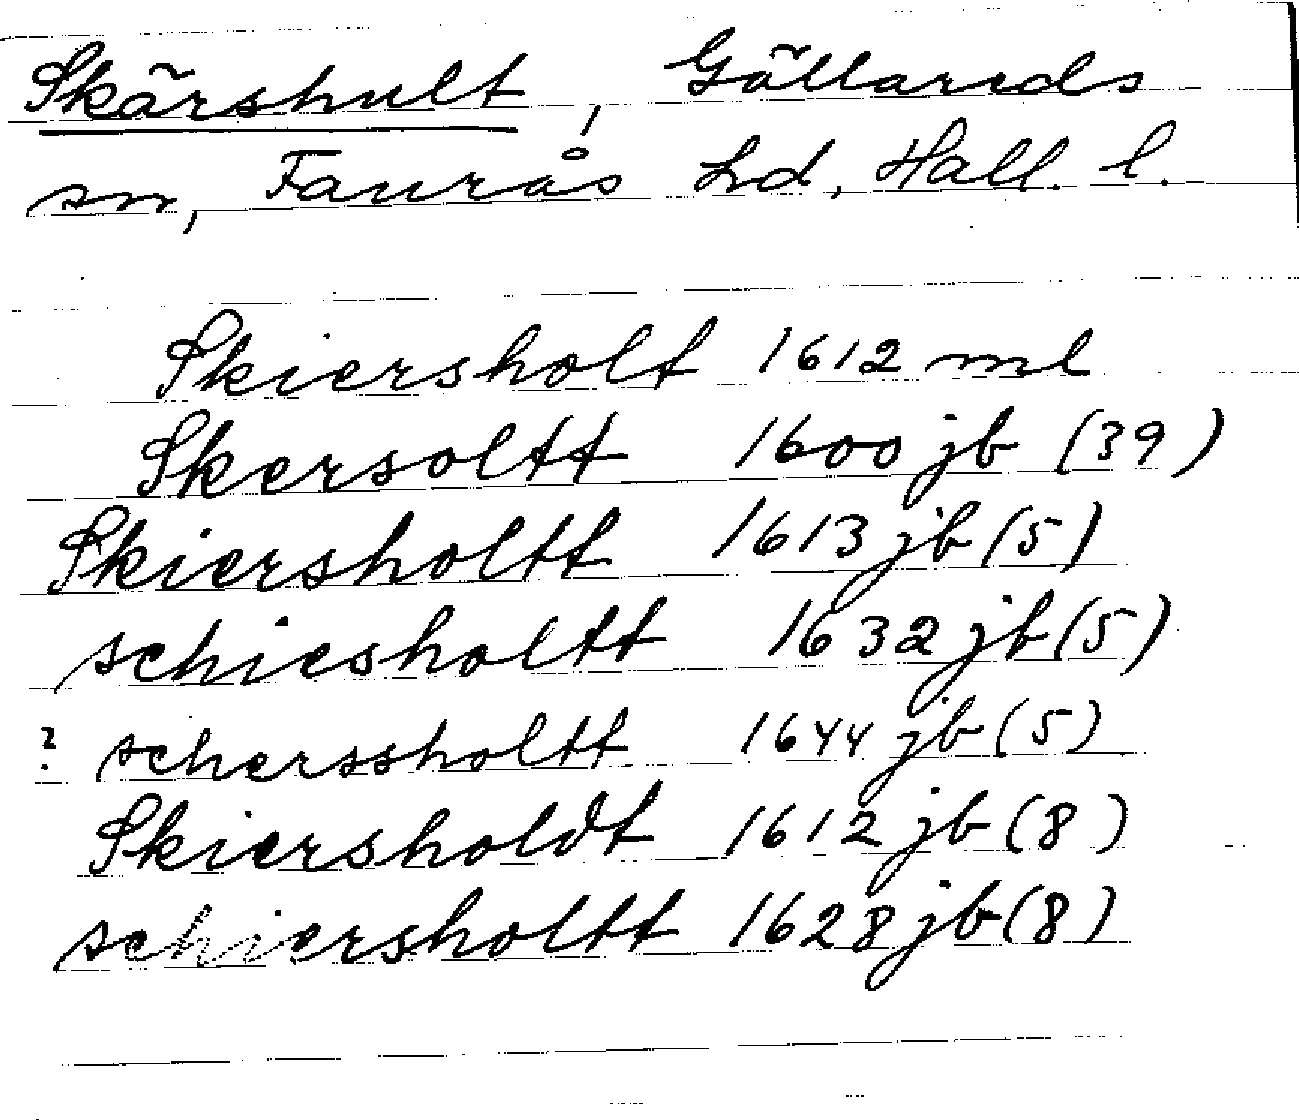 Skärshult, Gällareds
sn, Faurås hd, Hall. l.
Skiersholt 1612 ml
Skersoltt 1600 jb (39)
Skiersholtt 1613 jb (5)
schiesholtt 1632 jb (5)
? scherssholtt 1644 jb (5)
Skiersholdt 1612 jb (8)
schiersholtt 1628 jb (8)